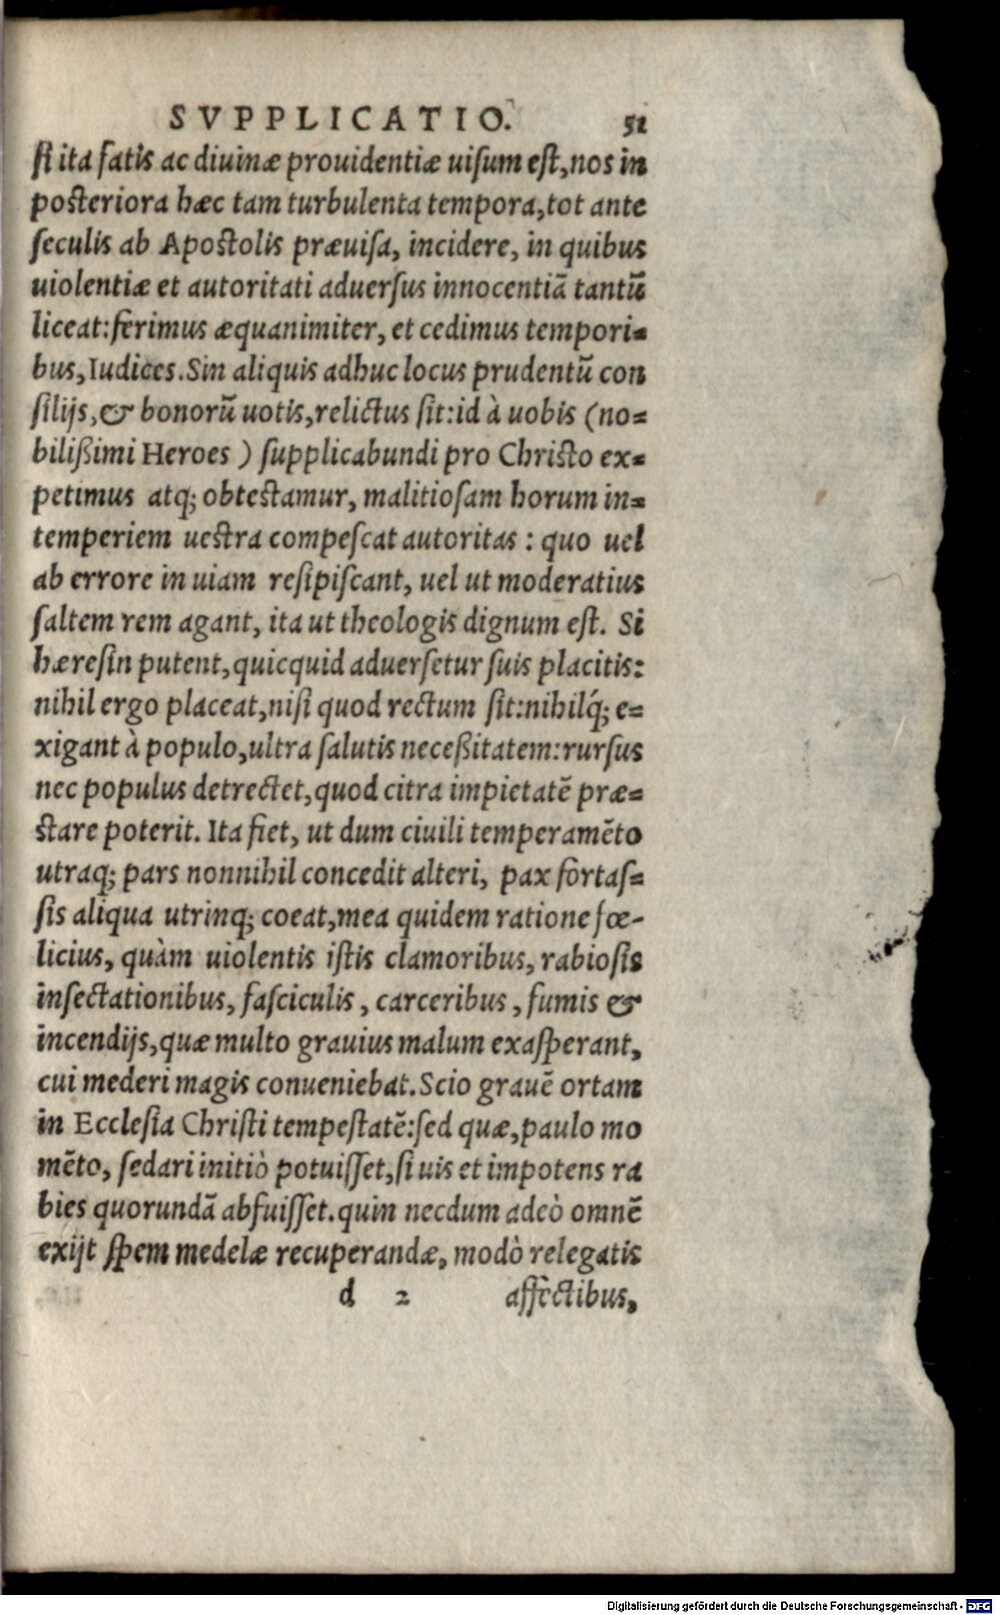 SVPPLICATIO. 51
ſi ita fatis ac diuinæ prouidentiæ uiſum eſt,nos in
poſteriora hæc tam turbulenta tempora,tot ante
ſeculis ab Apoſtolis præuiſa, incidere, in quibus
uiolentiæ et autoritati aduerſus innocentiã tantũ
liceat:ferimus æquanimiter, et cedimus tempori=
bus,Iudices.Sin aliquis adhuc locus prudentũ con
ſilijs,& bonorũ uotis,relictus ſit:id à uobis (no=
bilißimi Heroes ) ſupplicabundi pro Chriſto ex=
petimus atq; obteſtamur, malitioſam horum in=
temperiem ueſtra compeſcat autoritas : quo uel
ab errore in uiam reſipiſcant, uel ut moderatius
ſaltem rem agant, ita ut theologis dignum eſt. Si
hæreſin putent,quicquid aduerſetur ſuis placitis:
nihil ergo placeat,niſi quod rectum ſit:nihilq́; e=
xigant à populo,ultra ſalutis neceßitatem:rurſus
nec populus detrectet,quod citra impietatẽ præ=
ſtare poterit. Ita fiet, ut dum ciuili temperamẽto
utraq; pars nonnihil concedit alteri, pax fortaſ=
ſis aliqua utrinq; coeat,mea quidem ratione fœ-
licius, quàm uiolentis iſtis clamoribus, rabioſis
inſectationibus, faſciculis, carceribus, fumis &
incendijs,quæ multo grauius malum exaſperant,
cui mederi magis conueniebat.Scio grauẽ ortam
in Eccleſia Chriſti tempeſtatẽ:ſed quæ,paulo mo
mẽto, ſedari initiò potuiſſet,ſi uis et impotens ra
bies quorundã abfuiſſet.quin necdum adeò omnẽ
exijt ſpem medelæ recuperandæ, modò relegatis
d 2 affectibus,
Digitalisierung gefördert durch die Deutsche Forschungsgemeinschaft - DFG